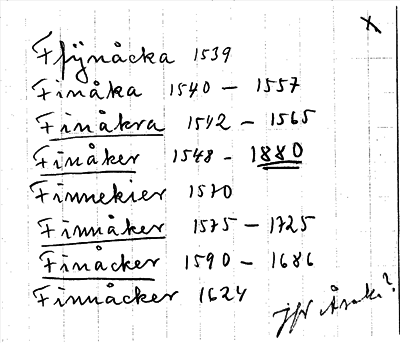 Ffijnåcka 1539
Finåka 1540 - 1557
Finåkra 1542 - 1565
Finåker 1548 - 1880
Finnekier 1570
Finnåker 1575 - 1725
Finåcker 1590 - 1686
Finnåcker 1624
jfr